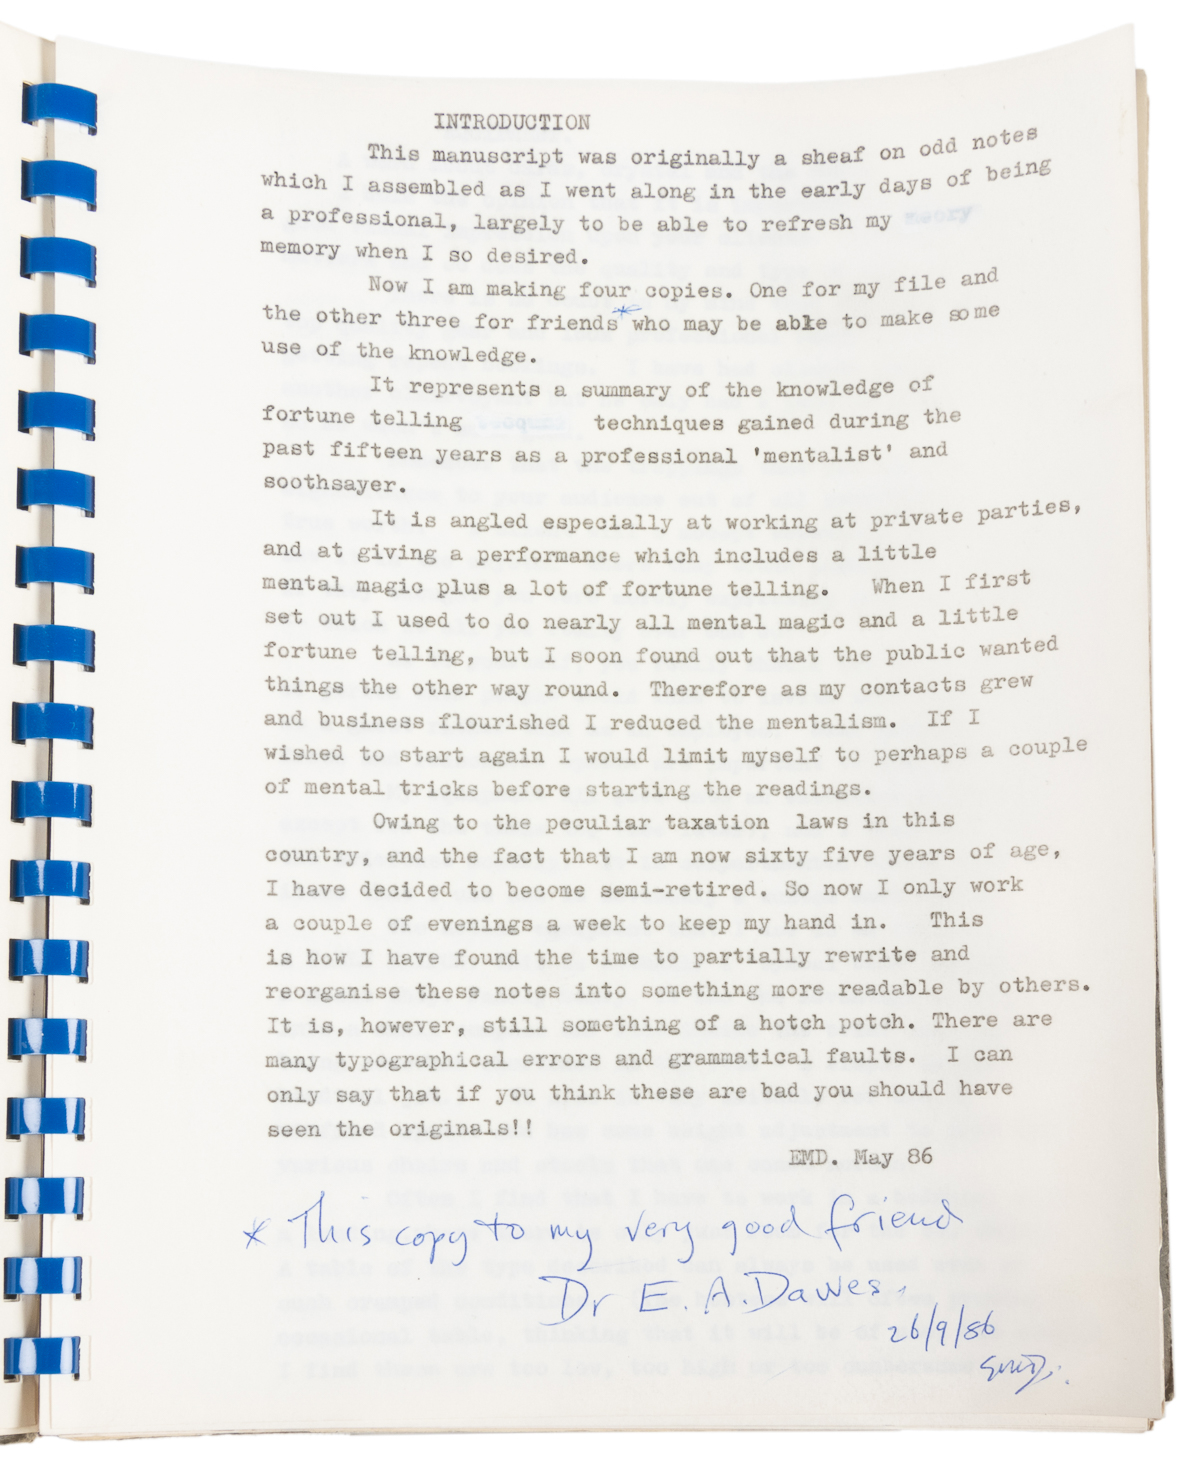 INTRODUCTION
This manuscript was originally a sheaf on odd notes
which I assembled as I went along in the early days of being
a professional, largely to be able to refresh my
memory when I so desired.
Now I am making four copies. One for my file and
the other three for friends* who may be able to make some
use of the knowledge.
It represents a summary of the knowledge of
fortune telling techniques gained during the
past fifteen years as a professional 'mentalist' and
soothsayer.
It is angled especially at working at private parties,
and at giving a performance which includes a little
mental magic plus a lot of fortune telling. When I first
set out I used to do nearly all mental magic and a little
fortune telling, but I soon found out that the public wanted
things the other way round. Therefore as my contacts grew
and business flourished I reduced the mentalism. If I
wished to start again I would limit myself to perhaps a couple
of mental tricks before starting the readings.
Owing to the peculiar taxation laws in this
country, and the fact that I am now sixty five years of age,
I have decided to become semi-retired. So now I only work
a couple of evenings a week to keep my hand in. This
is how I have found the time to partially rewrite and
reorganise these notes into something more readable by others.
It is, however, still something of a hotch potch. There are
many typographical errors and grammatical faults. I can
only say that if you think these are bad you should have
seen the originals!!
EMD. May 86
* This copy to my very good friend
Dr E. A. Dawes.
26/9/86